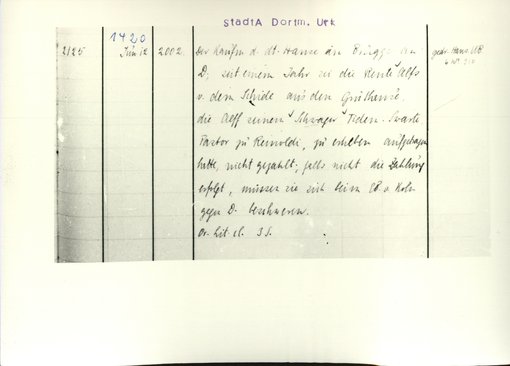 StadtA Dortm. Urk
1420
2125 Juni 12 2002. Der Kaufm. d. dt. Hanse in Brügge an
D., seit einem Jahr sei die Rente Alfs
v. dem Schide aus den
die Alff seinem Schwager Tideman Swarte
Pastor zu Reinoldi, zu erheben aufgetragen
hatte, nicht gezahlt; falls nicht die Zahlung
erfolgt, müssen sie sich beim v. Köln
gegen D. beschweren.
Or. lit. cl. 3 S.
gedr. Hans. UB